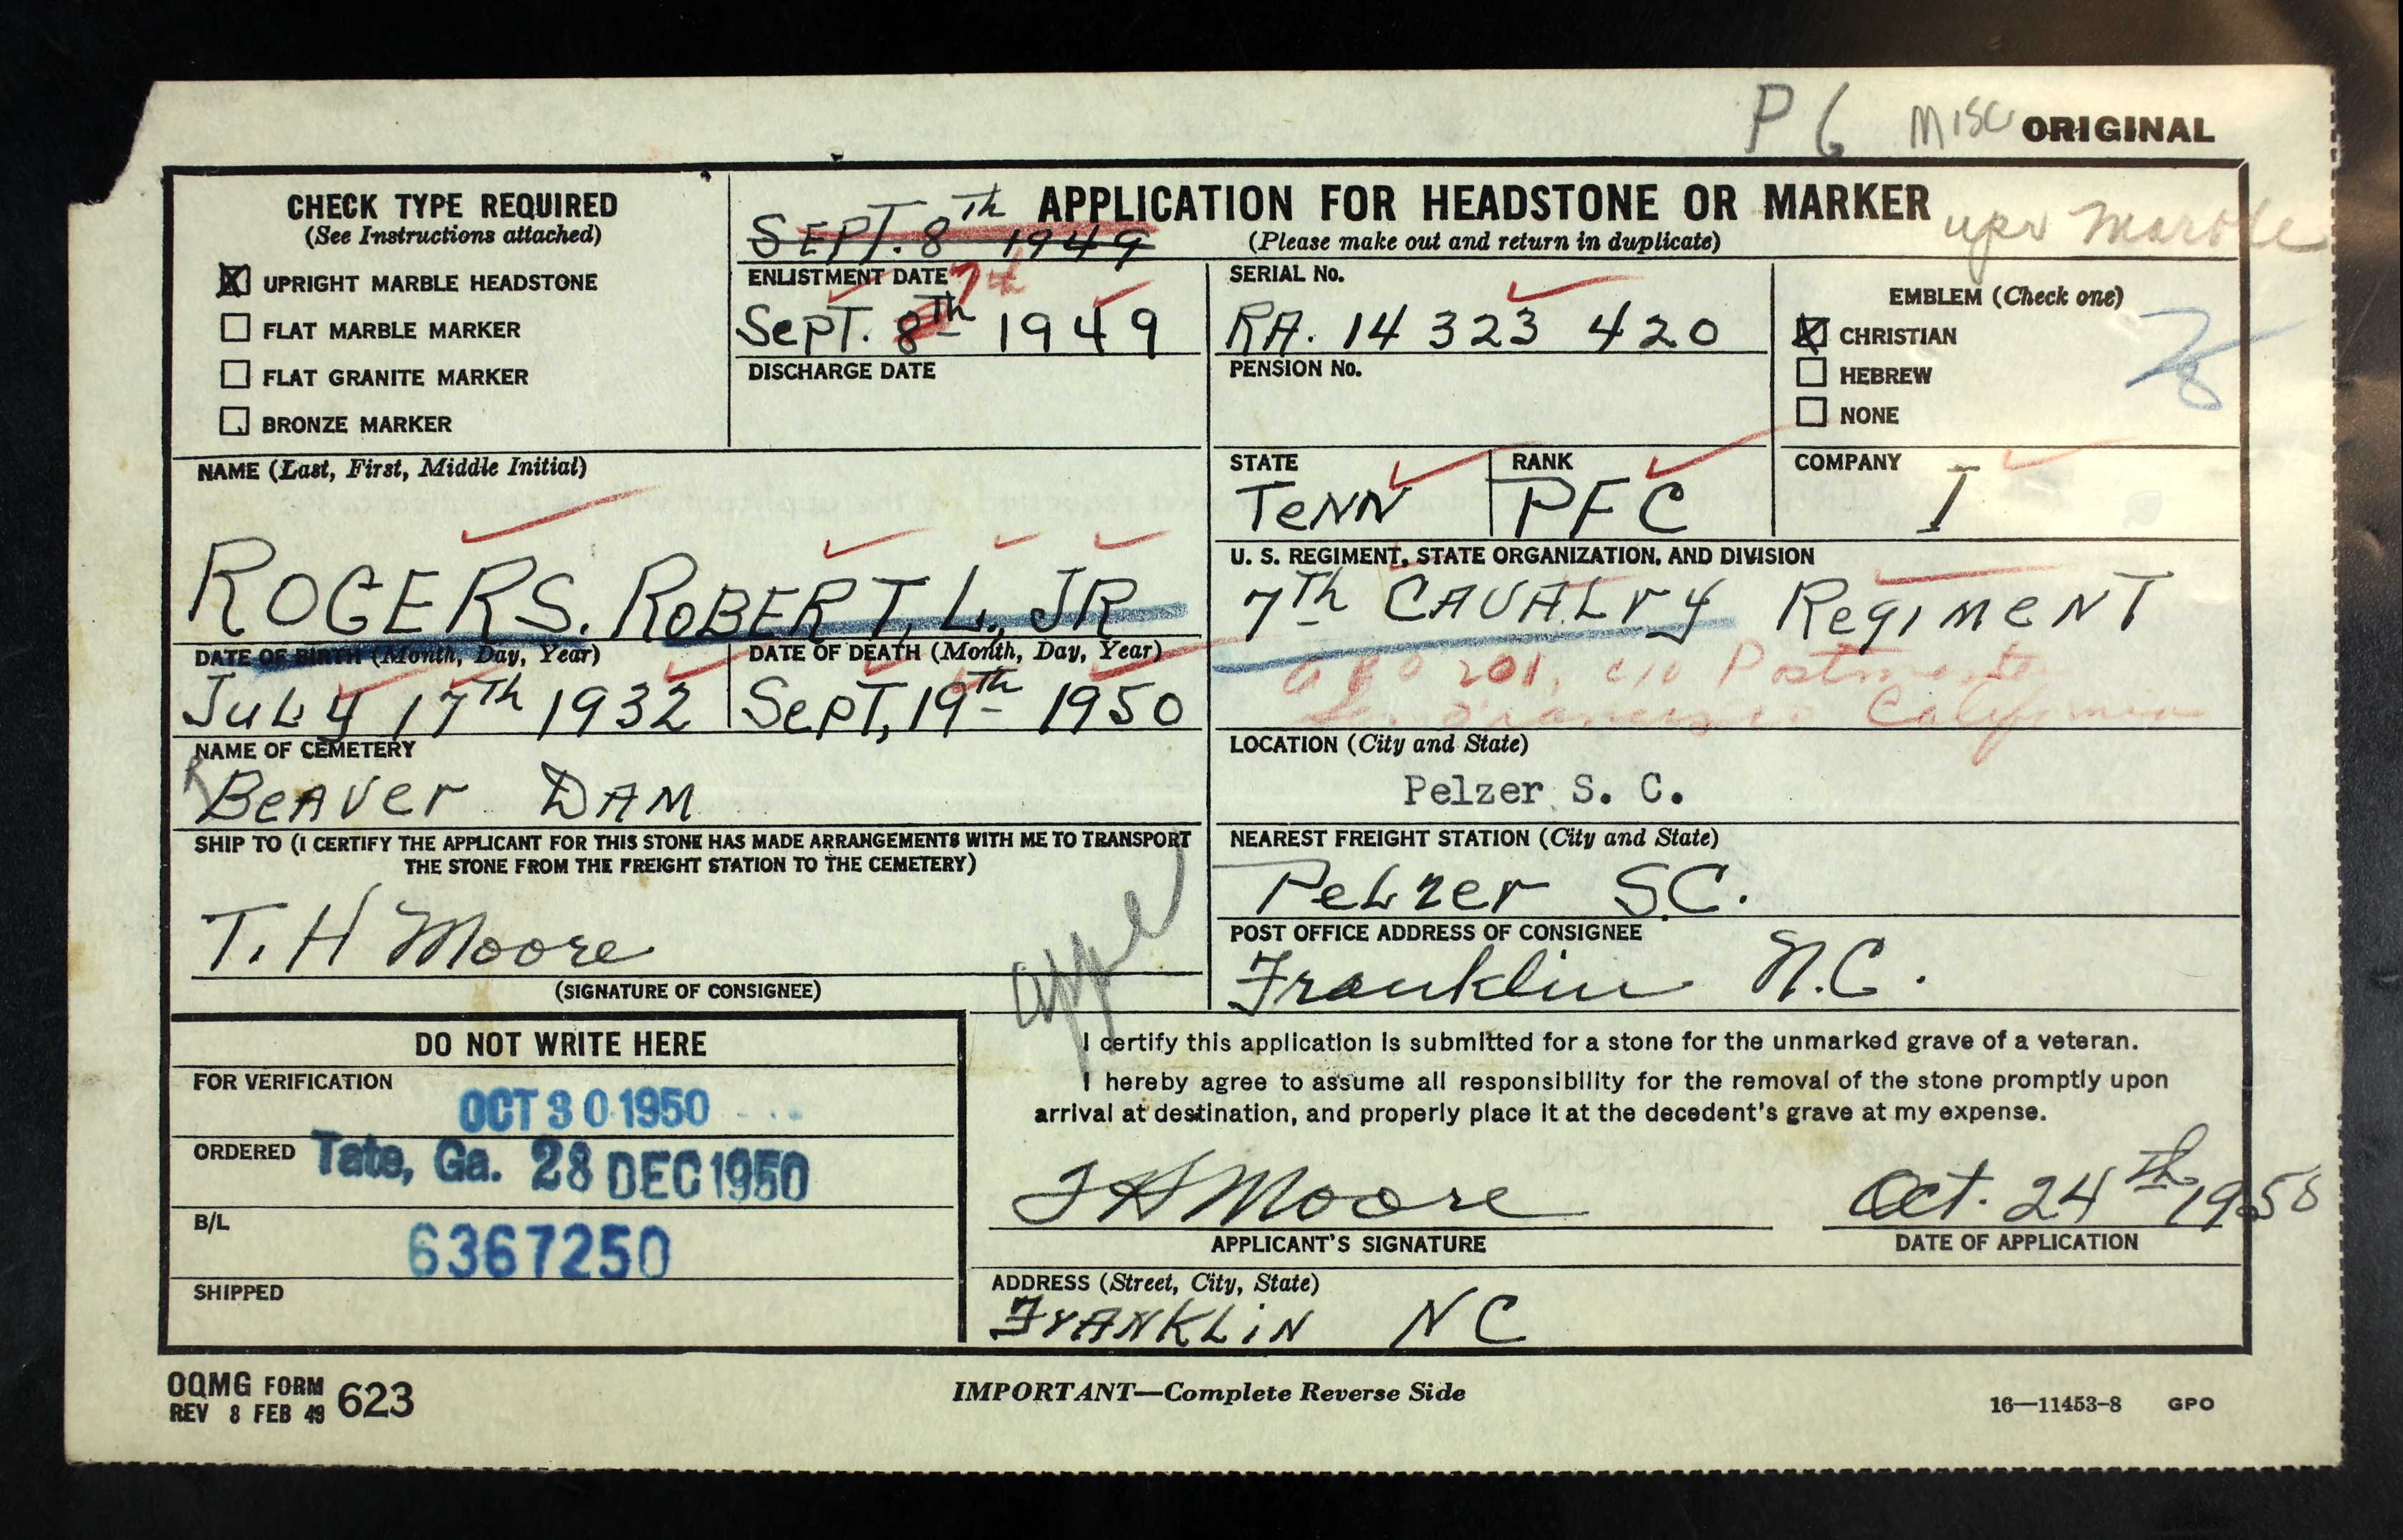 P 6 Misc ORIGINAL
CHECK TYPE REQUIRED
(See Instructions attached)
☒ UPRIGHT MARBLE HEADSTONE
☐ FLAT MARBLE MARKER
☐ FLAT GRANITE MARKER
☐ BRONZE MARKER
SEPT. 8th 1949
APPLICATION FOR HEADSTONE OR MARKER
(Please make out and return in duplicate)
upr Marble
ENLISTMENT DATE 7th
SepT. 8th 1949
DISCHARGE DATE
SERIAL No.
RA. 14 323 420
PENSION No.
EMBLEM (Check one)
☒ CHRISTIAN
☐ HEBREW
☐ NONE
NAME (Last, First, Middle Initial)
ROGERS. ROBERT, L., JR
STATE
TeNN
RANK
PFC
COMPANY
I
U. S. REGIMENT, STATE ORGANIZATION, AND DIVISION
7Th CAVALry RegiMeNT
APO 201, c/o Postmaster
San Francisco California
DATE OF BIRTH (Month, Day, Year)
JuLy 17Th 1932
DATE OF DEATH (Month, Day, Year)
SepT, 19Th 1950
NAME OF CEMETERY
BeAver DAM
LOCATION (City and State)
Pelzer S. C.
SHIP TO (I CERTIFY THE APPLICANT FOR THIS STONE HAS MADE ARRANGEMENTS WITH ME TO TRANSPORT
THE STONE FROM THE FREIGHT STATION TO THE CEMETERY)
T. H Moore
(SIGNATURE OF CONSIGNEE)
NEAREST FREIGHT STATION (City and State)
PeLzer S.C.
POST OFFICE ADDRESS OF CONSIGNEE
Franklin N.C.
DO NOT WRITE HERE
FOR VERIFICATION
OCT 30 1950
ORDERED Tate, Ga. 28 DEC 1950
B/L
6367250
SHIPPED
I certify this application is submitted for a stone for the unmarked grave of a veteran.
I hereby agree to assume all responsibility for the removal of the stone promptly upon
arrival at destination, and properly place it at the decedent's grave at my expense.
T H Moore
APPLICANT'S SIGNATURE
Oct. 24th 1950
DATE OF APPLICATION
ADDRESS (Street, City, State)
FrANKLiN NC
OQMG FORM 623
REV 8 FEB 49
IMPORTANT—Complete Reverse Side
16—11453-8 GPO